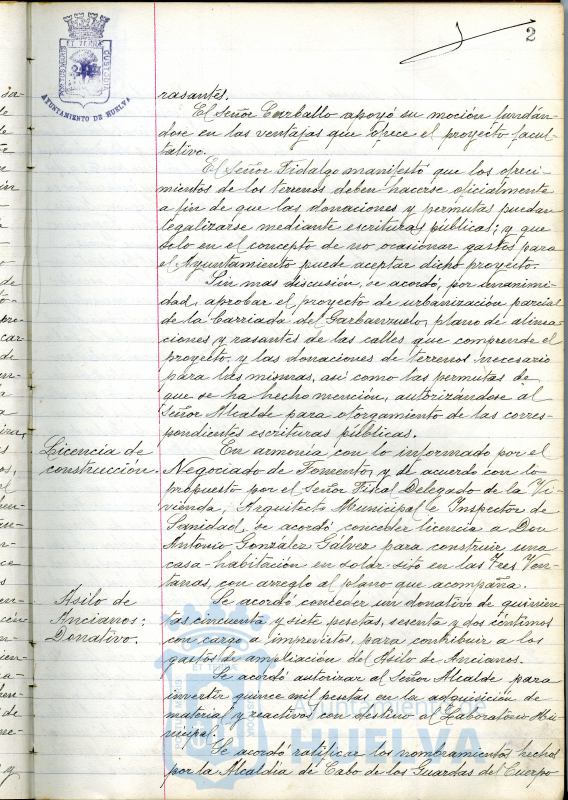 2
PORTUS MARIS ET TERRÆ CUSTODIA
AYUNTAMIENTO DE HUELVA
rasantes.
El Señor Carballo apoyó su moción fundán-
dose en las ventajas que ofrece el proyecto facul-
tativo.
El Señor Fidalgo manifestó que los ofreci-
mientos de los terrenos deben hacerse oficialmente
a fin de que las donaciones y permutas puedan
legalizarse mediante escrituras públicas; y que
solo en el concepto de no ocasionar gastos para
el Ayuntamiento puede aceptar dicho proyecto.
Sin mas discusión, se acordó, por unanimi-
dad, aprobar el proyecto de urbanización parcial
de la barriada del Garbanzuelo, plano de alinea-
ciones y rasantes de las calles que comprende el
proyecto, y las donaciones de terrenos necesario
para las mismas, asi como las permutas de
que se ha hecho mención, autorizándose al
Señor Alcalde para otorgamiento de las corres-
pondientes escrituras públicas.
Licencia de
construcción.
En armonia con lo informado por el
Negociado de Fomento, y de acuerdo con lo
propuesto por el Señor Fiscal Delegado de la Vi-
vienda, Arquitecto Municipal e Inspector de
Sanidad, se acordó conceder licencia a Don
Antonio González Gálvez para construir una
casa-habitación en solar sito en las Tres Ven-
tanas, con arreglo al plano que acompaña.
Asilo de
Ancianos:
Donativo.
Se acordó conceder un donativo de quinien-
tas cincuenta y siete pesetas, sesenta y dos centimos
con cargo a imprevistos, para contribuir a los
gastos de ampliación del Asilo de Ancianos.
Se acordó autorizar al Señor Alcalde para
invertir quince mil pesetas en la adquisición de
material y reactivos con destino al Laboratorio Mu-
nicipal.
Se acordó ratificar los nombramientos hechos
por la Alcaldia de Cabo de los Guardas del Cuerpo
Ayuntamiento de
HUELVA